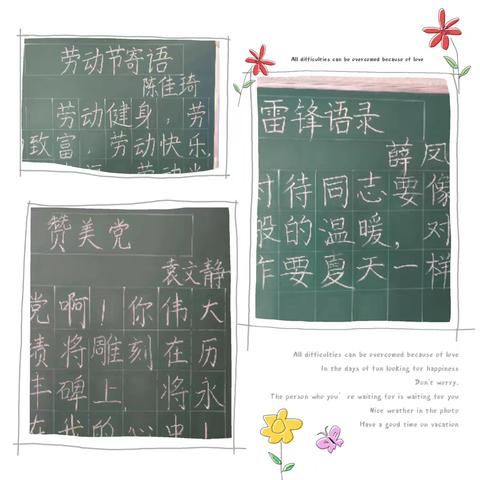 All difficulties can be overcomed because of love
劳动节寄语
陈佳琦
劳动健身，劳
致富，劳动快乐，
雷锋语录
薛凤
对待同志要像
般的温暖，对
作要夏天一样
赞美党
袁文静
党啊！你伟大
绩将雕刻在历
丰碑上，将永
在我的心中！
All difficulties can be overcomed because of love
In the days of fun looking for happiness
Don't worry,
The person who you're waiting for is waiting for you
Nice weather in the photo
Have a good time on vacation